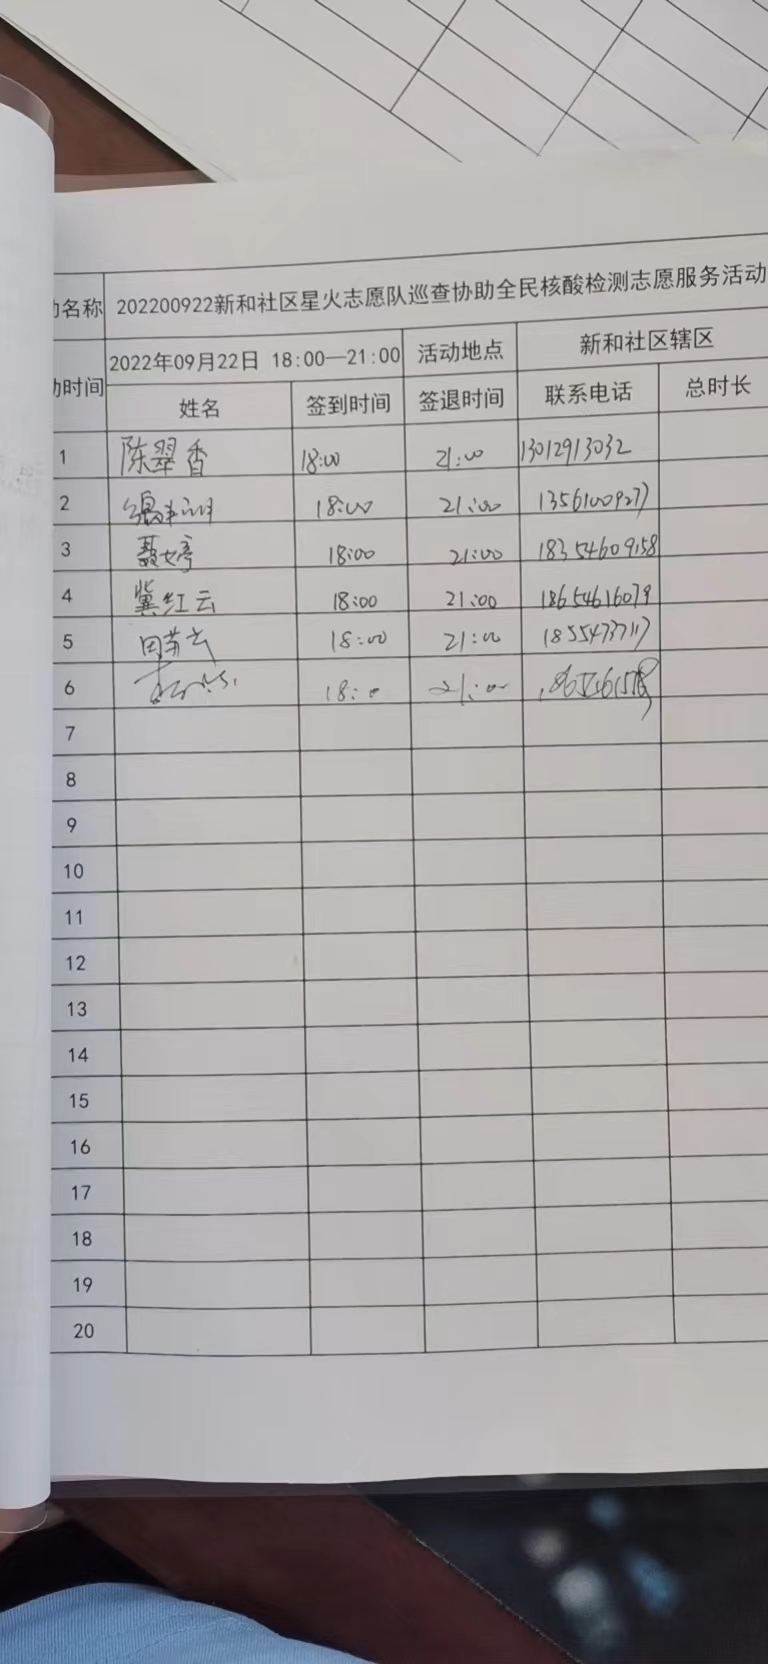 动名称 202200922新和社区星火志愿队巡查协助全民核酸检测志愿服务活动
动时间 2022年09月22日 18:00—21:00 活动地点 新和社区辖区
姓名 签到时间 签退时间 联系电话 总时长
1 陈翠香 18:00 21:00 13012913032
2 18:00 21:00 13561009277
3 聂婷 18:00 21:00 18354609158
4 冀红云 18:00 21:00 18654616079
5 18:00 21:00 18554737117
6 18:0 21:00
7
8
9
10
11
12
13
14
15
16
17
18
19
20